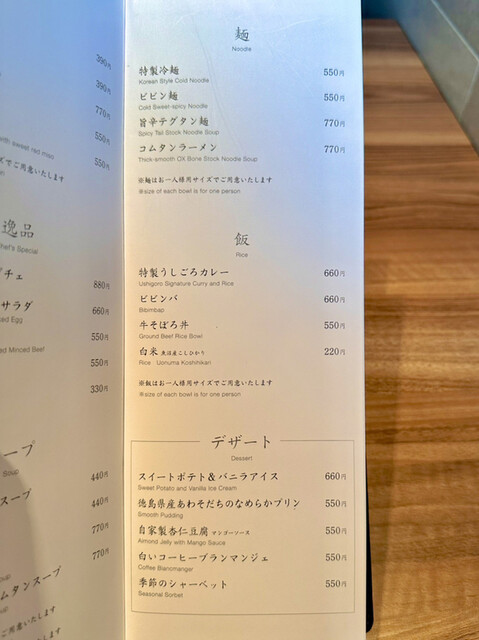 390円
390円
770円
with sweet red miso
550円
550円
でご用意いたします
逸品
Chef's Special
プチェ
880円
サラダ
660円
550円
ed Minced Beef
550円
330円
スープ
Soup
440円
スープ
440円
770円
スープ
770円
ムタンスープ
でご用意いたします
麺
Noodle
特製冷麺 550円
Korean Style Cold Noodle
ビビン麺 550円
Cold Sweet-spicy Noodle
旨辛テグタン麺 770円
Spicy Tail Stock Noodle Soup
コムタンラーメン 770円
Thick-smooth OX Bone Stock Noodle Soup
※麺はお一人様用サイズでご用意いたします
※size of each bowl is for one person
飯
Rice
特製うしごろカレー 660円
Ushigoro Signature Curry and Rice
ビビンバ 660円
Bibimbap
牛そぼろ丼 550円
Ground Beef Rice Bowl
白米 魚沼産こしひかり 220円
Rice Uonuma Koshihikari
※飯はお一人様用サイズでご用意いたします
※size of each bowl is for one person
デザート
Dessert
スイートポテト＆バニラアイス 660円
Sweet Potato and Vanilla Ice Cream
徳島県産あわそだちのなめらかプリン 550円
Smooth Pudding
自家製杏仁豆腐 マンゴーソース 550円
Almond Jelly with Mango Sauce
白いコーヒーブランマンジェ 550円
Coffee Blancmanger
季節のシャーベット 550円
Seasonal Sorbet